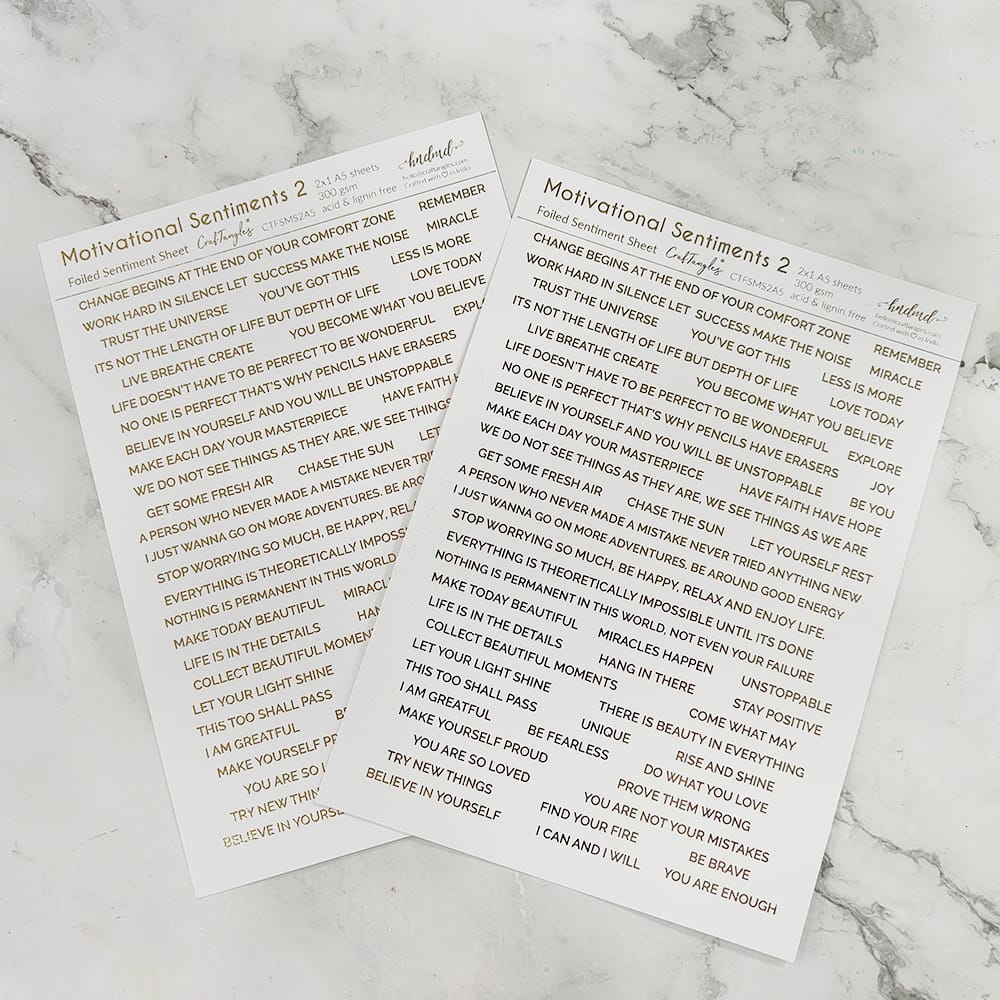 Motivational Sentiments 2 2x1 A5 sheets hndmd
Foiled Sentiment Sheet CrafTangles® CTFSMS2A5 300 gsm hello@craftangles.com
acid & lignin free Crafted with ♡ in India
CHANGE BEGINS AT THE END OF YOUR COMFORT ZONE REMEMBER
WORK HARD IN SILENCE LET SUCCESS MAKE THE NOISE MIRACLE
TRUST THE UNIVERSE YOU'VE GOT THIS LESS IS MORE
ITS NOT THE LENGTH OF LIFE BUT DEPTH OF LIFE LOVE TODAY
LIVE BREATHE CREATE YOU BECOME WHAT YOU BELIEVE
LIFE DOESN'T HAVE TO BE PERFECT TO BE WONDERFUL EXPL
NO ONE IS PERFECT THAT'S WHY PENCILS HAVE ERASERS
BELIEVE IN YOURSELF AND YOU WILL BE UNSTOPPABLE
MAKE EACH DAY YOUR MASTERPIECE HAVE FAITH
WE DO NOT SEE THINGS AS THEY ARE, WE SEE THINGS
GET SOME FRESH AIR CHASE THE SUN LET
A PERSON WHO NEVER MADE A MISTAKE NEVER TRI
I JUST WANNA GO ON MORE ADVENTURES. BE ARO
STOP WORRYING SO MUCH, BE HAPPY, RELA
EVERYTHING IS THEORETICALLY IMPOSS
NOTHING IS PERMANENT IN THIS WORLD
MAKE TODAY BEAUTIFUL MIRACL
LIFE IS IN THE DETAILS HAN
COLLECT BEAUTIFUL MOMENT
LET YOUR LIGHT SHINE
THIS TOO SHALL PASS
I AM GREATFUL BE
MAKE YOURSELF PRO
YOU ARE SO L
TRY NEW THIN
BELIEVE IN YOURSE
Motivational Sentiments 2 2x1 A5 sheets hndmd
Foiled Sentiment Sheet CrafTangles® CTFSMS2A5 300 gsm hello@craftangles.com
acid & lignin free Crafted with ♡ in India
CHANGE BEGINS AT THE END OF YOUR COMFORT ZONE REMEMBER
WORK HARD IN SILENCE LET SUCCESS MAKE THE NOISE MIRACLE
TRUST THE UNIVERSE YOU'VE GOT THIS LESS IS MORE
ITS NOT THE LENGTH OF LIFE BUT DEPTH OF LIFE LOVE TODAY
LIVE BREATHE CREATE YOU BECOME WHAT YOU BELIEVE
LIFE DOESN'T HAVE TO BE PERFECT TO BE WONDERFUL EXPLORE
NO ONE IS PERFECT THAT'S WHY PENCILS HAVE ERASERS JOY
BELIEVE IN YOURSELF AND YOU WILL BE UNSTOPPABLE BE YOU
MAKE EACH DAY YOUR MASTERPIECE HAVE FAITH HAVE HOPE
WE DO NOT SEE THINGS AS THEY ARE, WE SEE THINGS AS WE ARE
GET SOME FRESH AIR CHASE THE SUN LET YOURSELF REST
A PERSON WHO NEVER MADE A MISTAKE NEVER TRIED ANYTHING NEW
I JUST WANNA GO ON MORE ADVENTURES. BE AROUND GOOD ENERGY
STOP WORRYING SO MUCH, BE HAPPY, RELAX AND ENJOY LIFE.
EVERYTHING IS THEORETICALLY IMPOSSIBLE UNTIL ITS DONE
NOTHING IS PERMANENT IN THIS WORLD, NOT EVEN YOUR FAILURE
MAKE TODAY BEAUTIFUL MIRACLES HAPPEN UNSTOPPABLE
LIFE IS IN THE DETAILS HANG IN THERE STAY POSITIVE
COLLECT BEAUTIFUL MOMENTS COME WHAT MAY
LET YOUR LIGHT SHINE THERE IS BEAUTY IN EVERYTHING
THIS TOO SHALL PASS UNIQUE RISE AND SHINE
I AM GREATFUL BE FEARLESS DO WHAT YOU LOVE
MAKE YOURSELF PROUD PROVE THEM WRONG
YOU ARE SO LOVED YOU ARE NOT YOUR MISTAKES
TRY NEW THINGS FIND YOUR FIRE BE BRAVE
BELIEVE IN YOURSELF I CAN AND I WILL YOU ARE ENOUGH